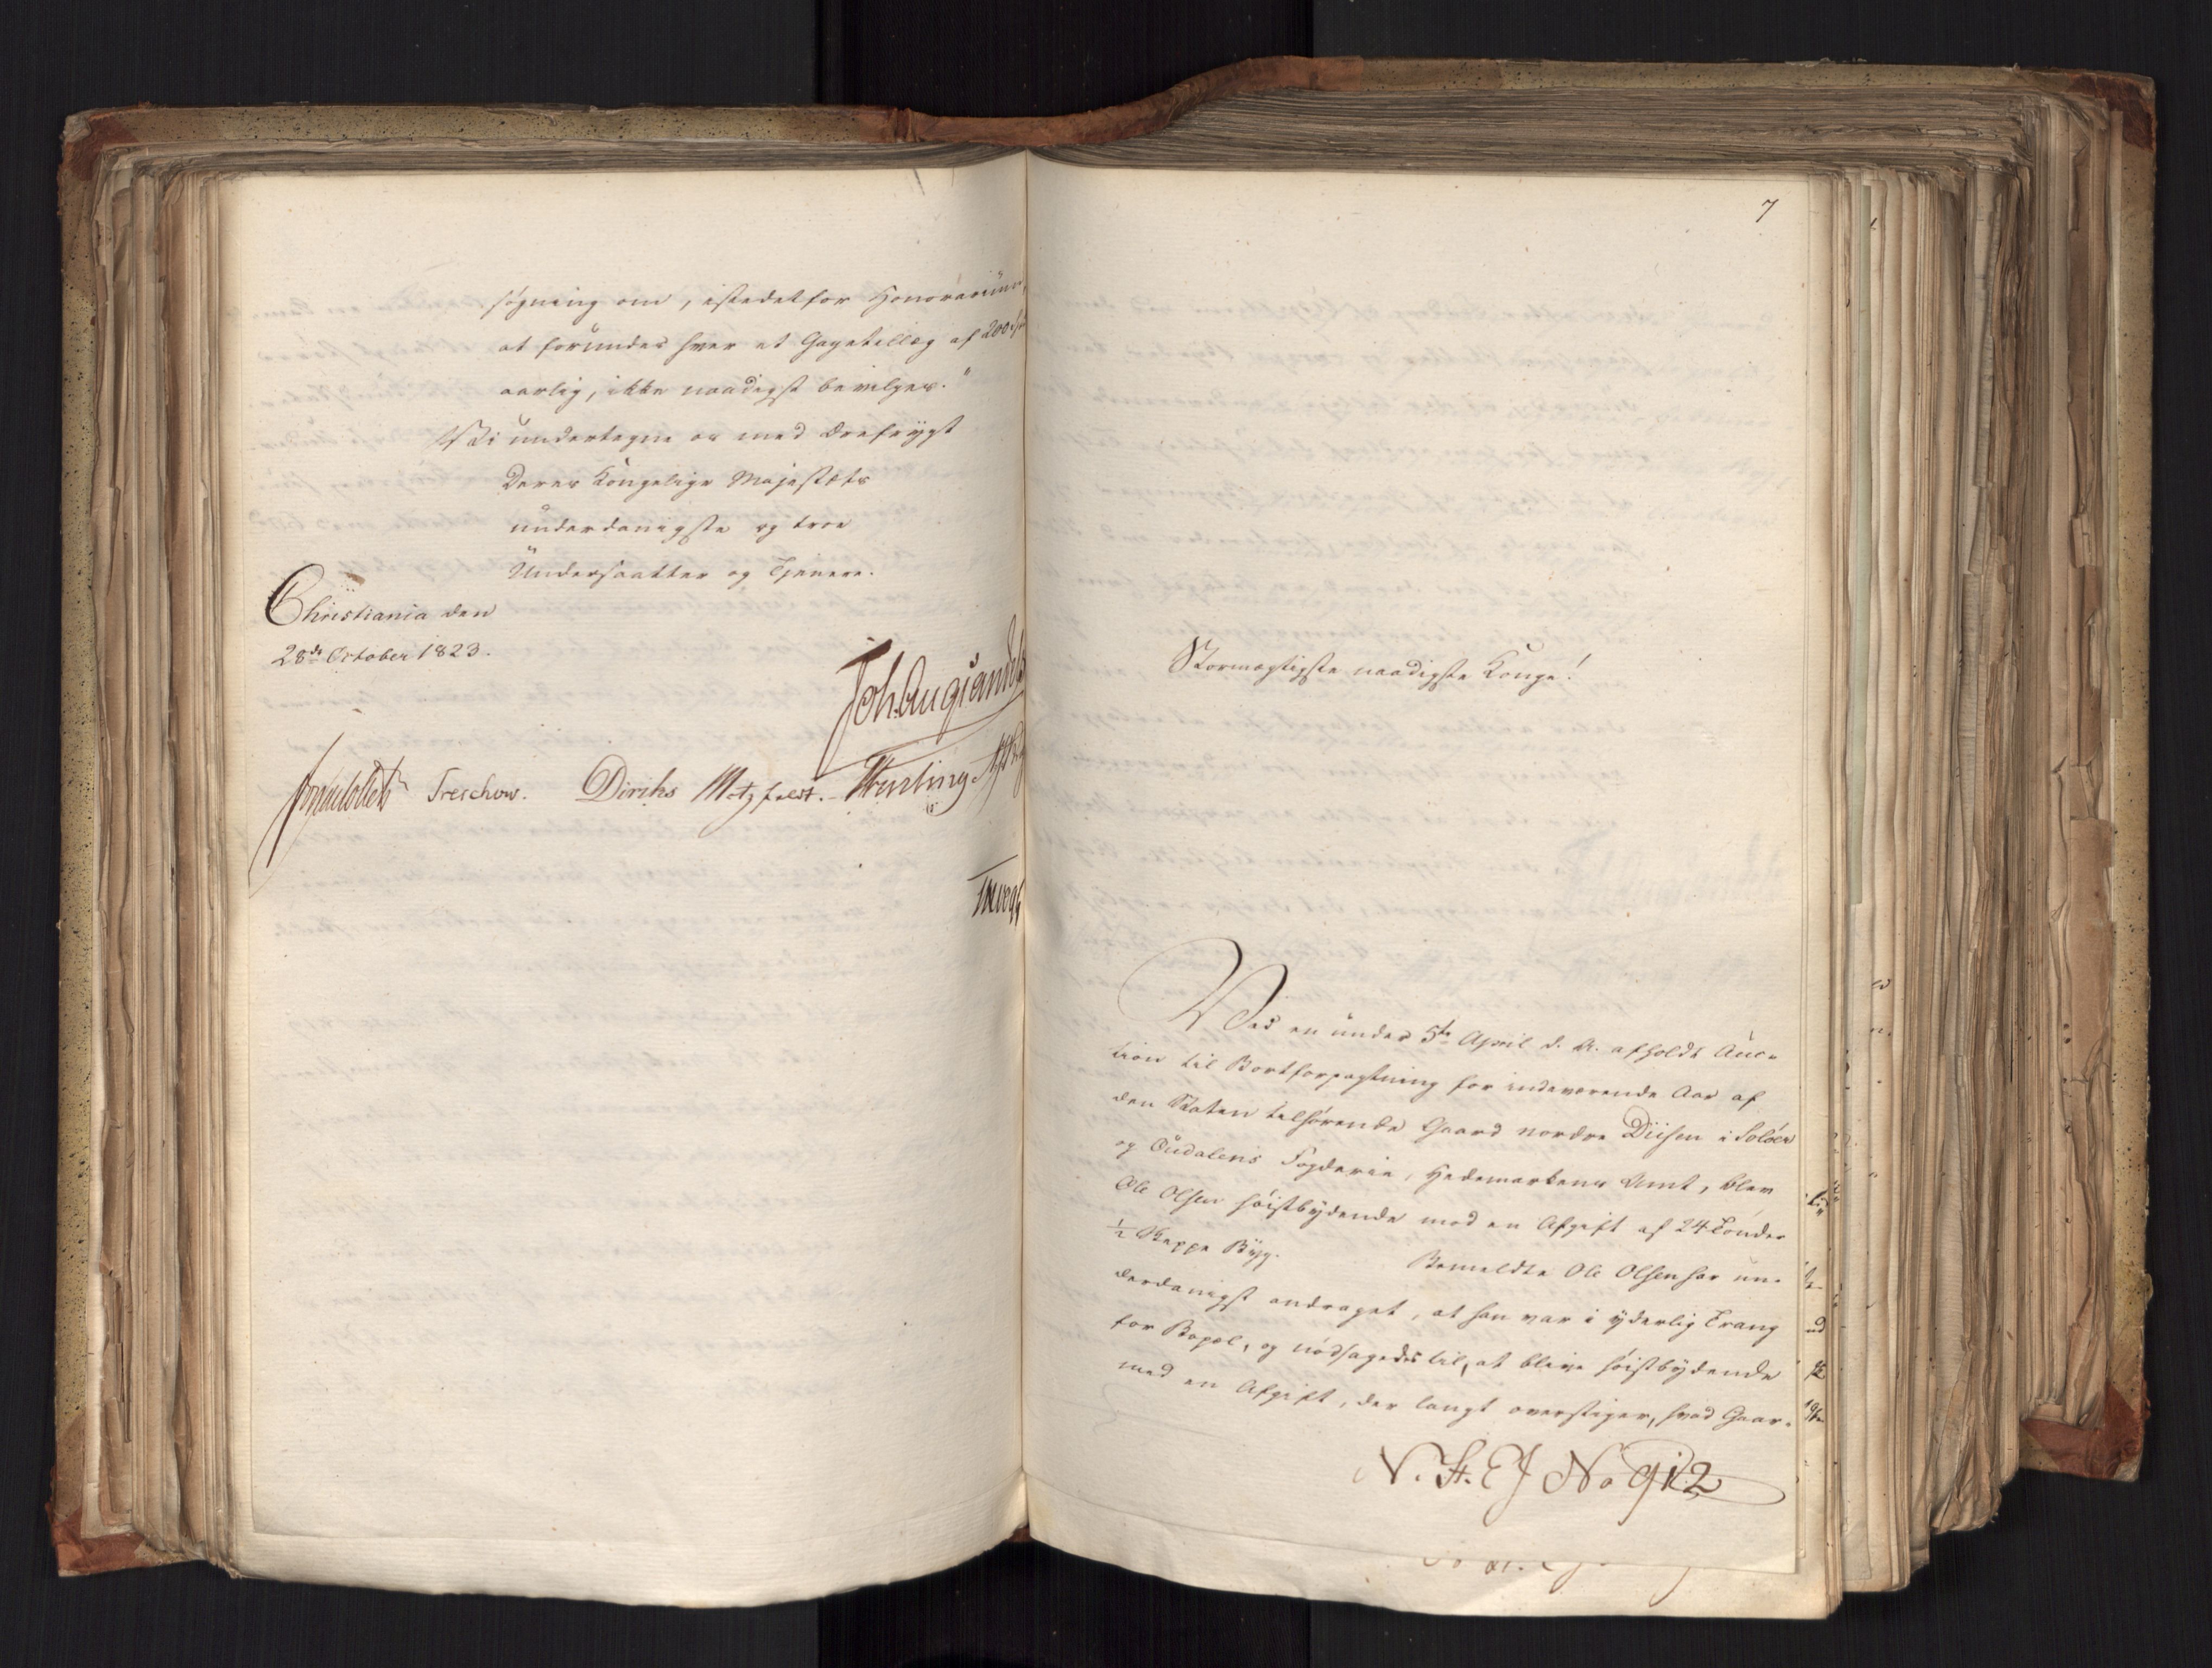 søgning om, istedetfor Honorarium,
at forundes hver et Gagetillæg af 200 Spd
aarlig, ikke naadigst bevilges."
Vi undertegne os med Ærefrygt
Deres Kongelige Majestæts
underdanigste og troe
Undersaatter og Tjenere.
Christiania den
28de October 1823.
Joh. Aug. Sandels
Treschow. Diriks Motzfeldt.
7
Stormægtigste naadigste Konge!
Ved en under 5te April d. A. afholdt Auc-
tion til Bortforpagtning for indeværende Aar af
den Staten tilhørende Gaard nordre Diisen i Soløer
og Oudalens Fogderie, Hedemarkens Amt, blev
Ole Olsen høistbydende med en Afgift af 24 Tønder
1/2 Skeppe Byg. Bemeldte Ole Olsen har un-
derdanigst andraget, at han var i yderlig Trang
for Bopæl, og nødsagedes til, at blive høistbydende
med en Afgift, der langt overstiger, hvad Gaar-
N. St. E J No 912